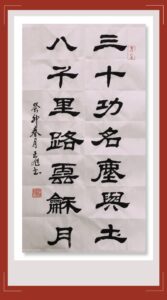 三十功名塵與土
八千里路雲龢月
癸卯春月